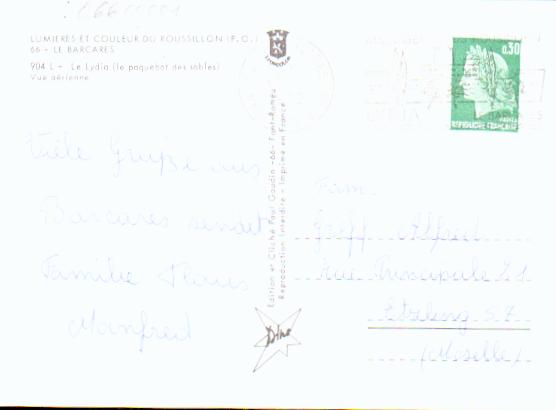 LUMIERES ET COULEUR DU ROUSSILLON (P.O.)
66 - LE BARCARES
904 L - Le Lydia (le paquebot des sables)
Vue aérienne
0,30
REPUBLIQUE FRANÇAISE
LYDIA
Viele Grüße aus
Barcares sendet
Familie
Manfred
Edition et Cliché Paul Gaudin -66- Font-Romeu
Reproduction Interdite - Imprimé en France
Firm.
Greff Alfred
rue Principale
Etzling 57
(Moselle)